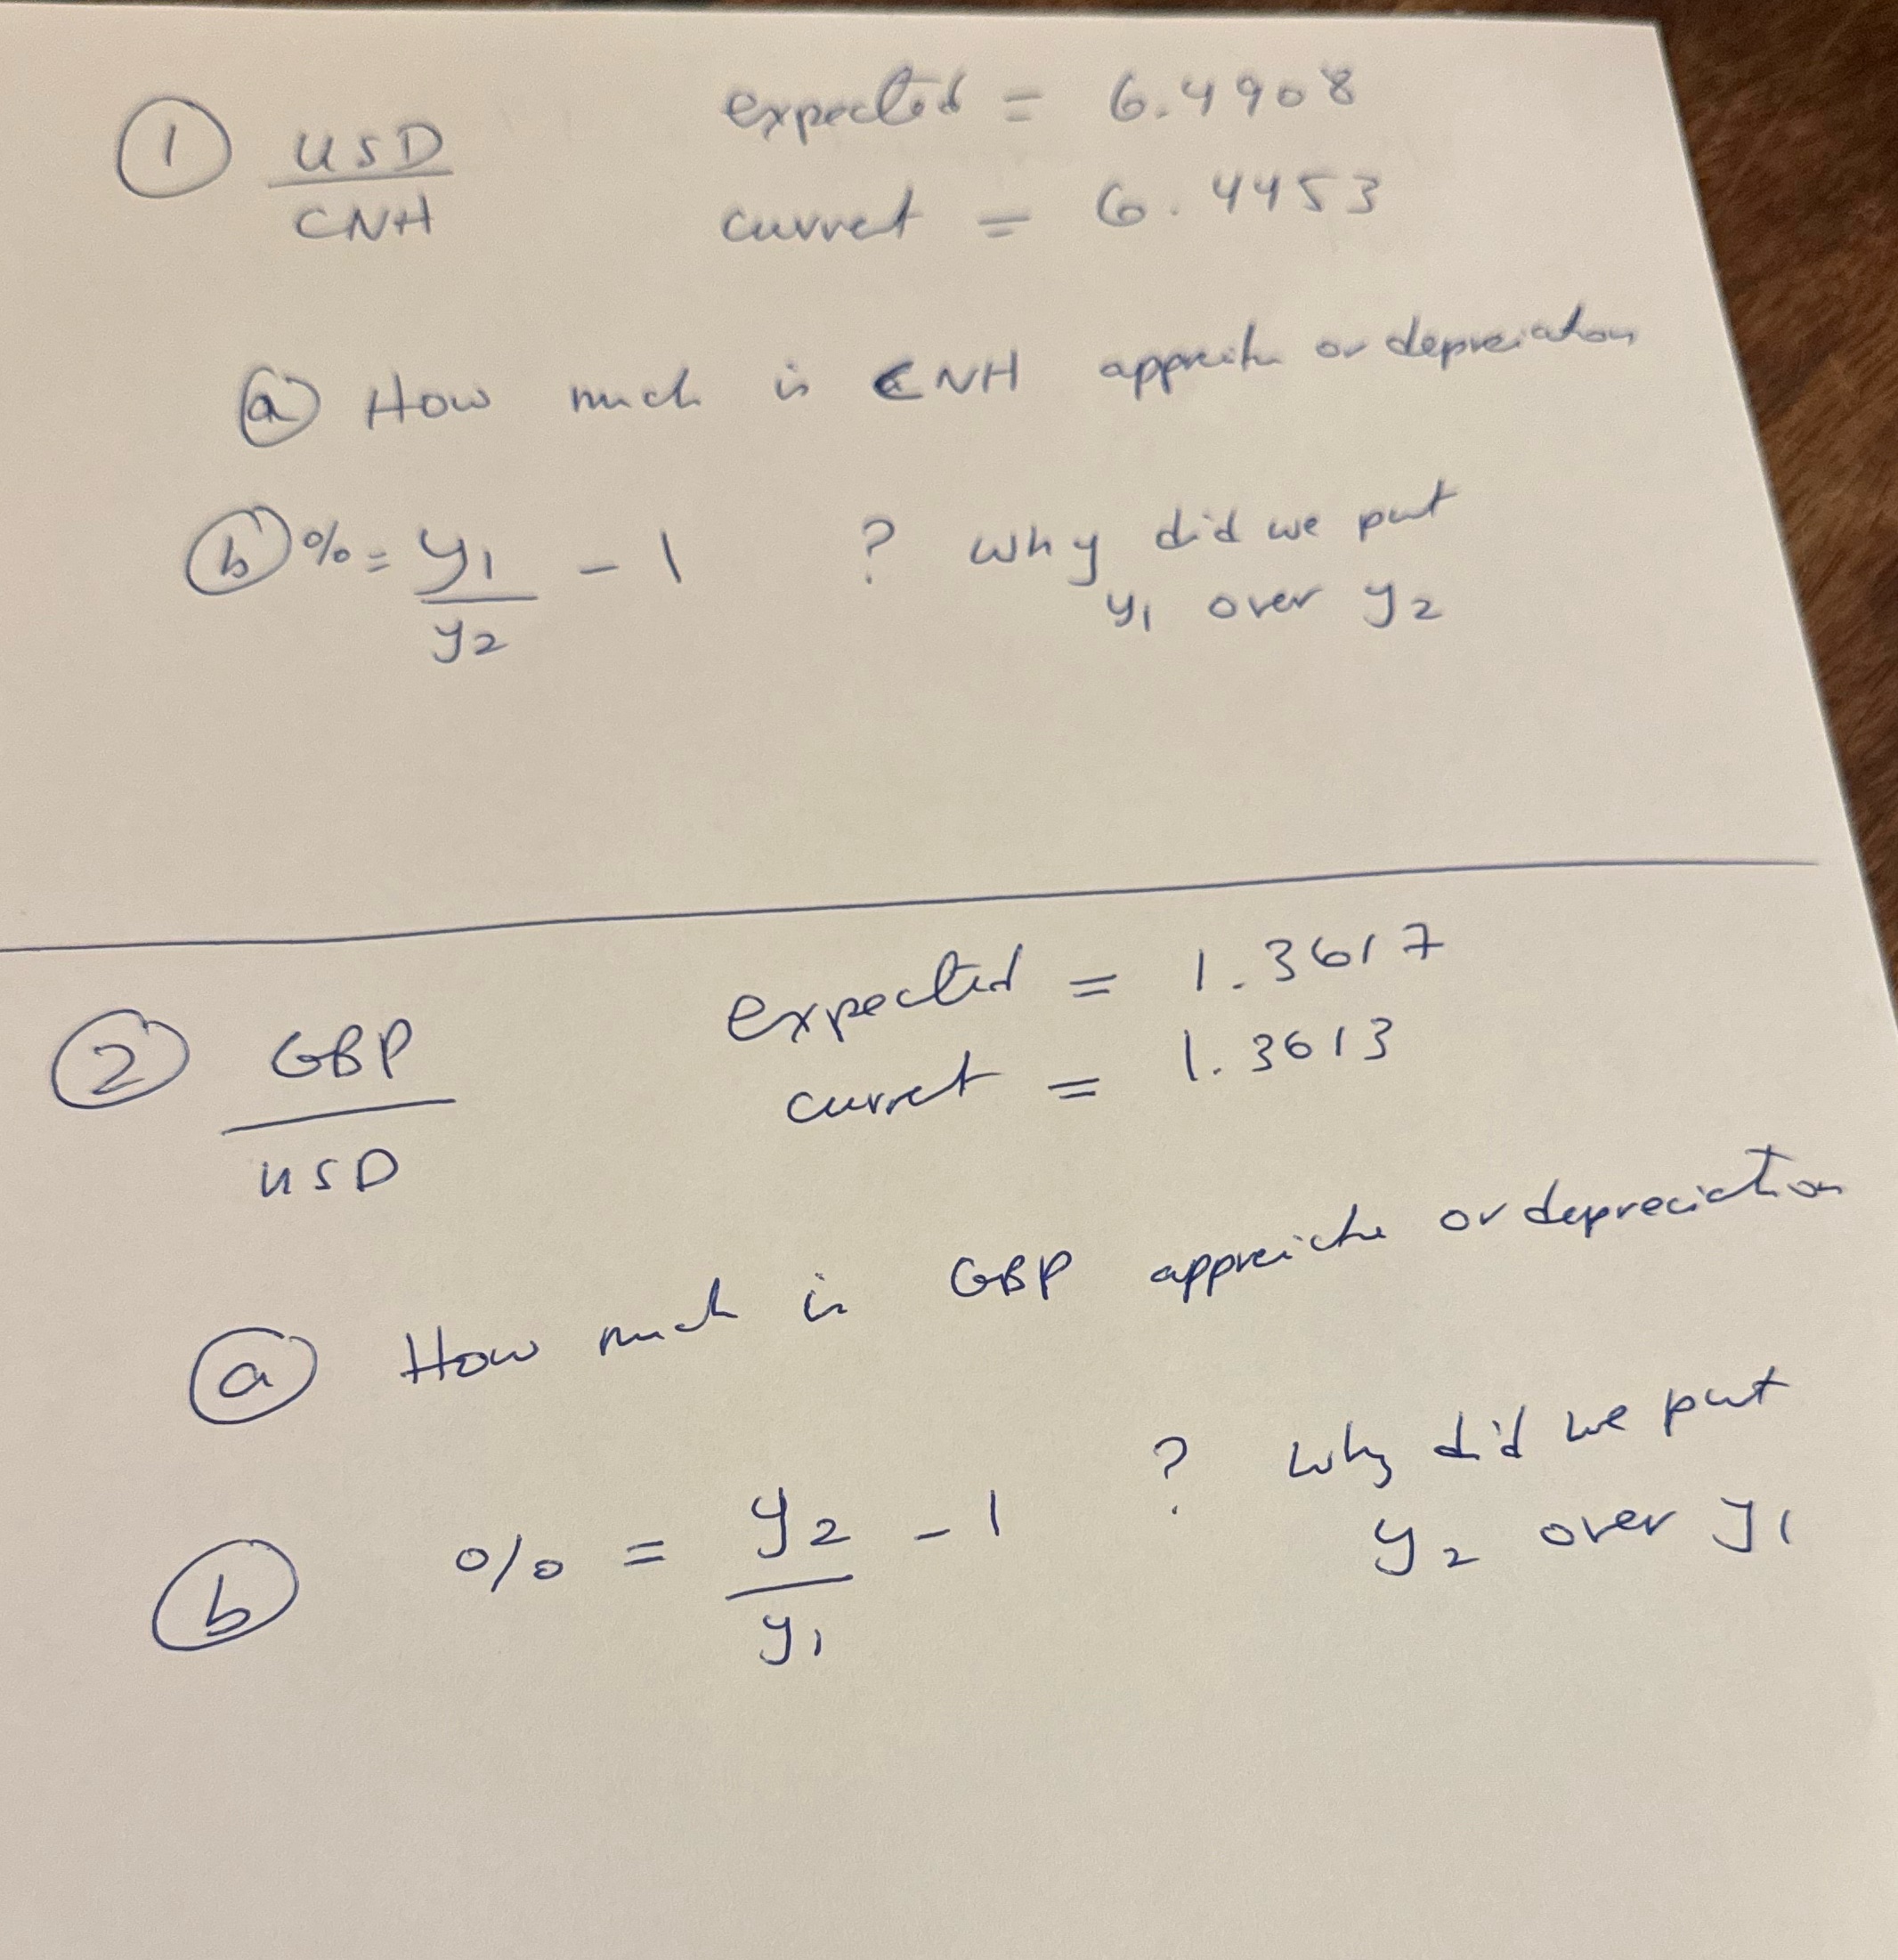 ① USD
CNH
expected = 6.4908
current = 6.4453
ⓐ How much is CNH appreciate or depreciation
ⓑ % = y1 / y2 - 1 ? why did we put
y1 over y2
② GBP
USD
expected = 1.3617
current = 1.3613
ⓐ How much is GBP appreciate or depreciation
ⓑ % = y2 / y1 - 1 ? why did we put
y2 over y1